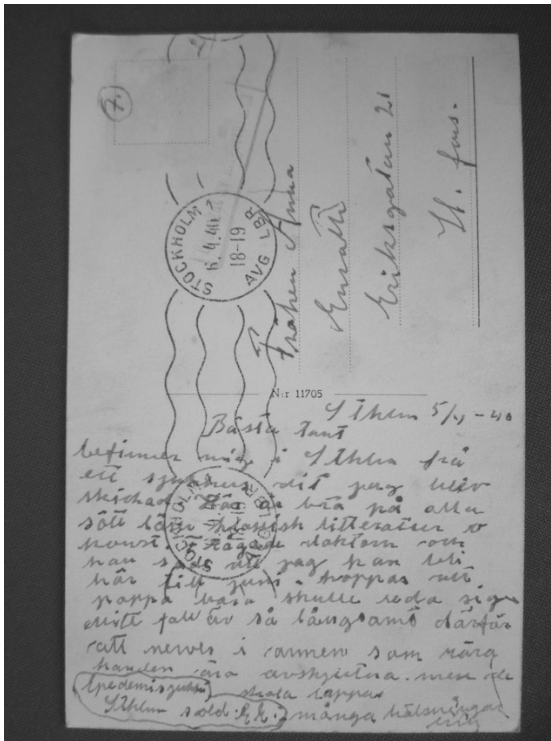 7.
STOCKHOLM 7
6.4.40
18-19
AVG LBR
Fröken Anna
Eriksgatan 21
H. fors.
N:r 11705
Sthlm 5/4 -40
Bästa tant
befinner mig i Sthlm på
ett sjukhus dit jag blev
skickad. är bra på alla
sätt läser litteratur o
konst. frågade doktorn och
han sade att jag kan bli
här till juni. hoppas att
pappa bara skulle reda sig.
mitt fall är så långsamt därför
att nerver i armen som rörg
handen äro avskjutna. men de
skola lappas
Sthlm sold. många hälsningar
STOCKHOLM